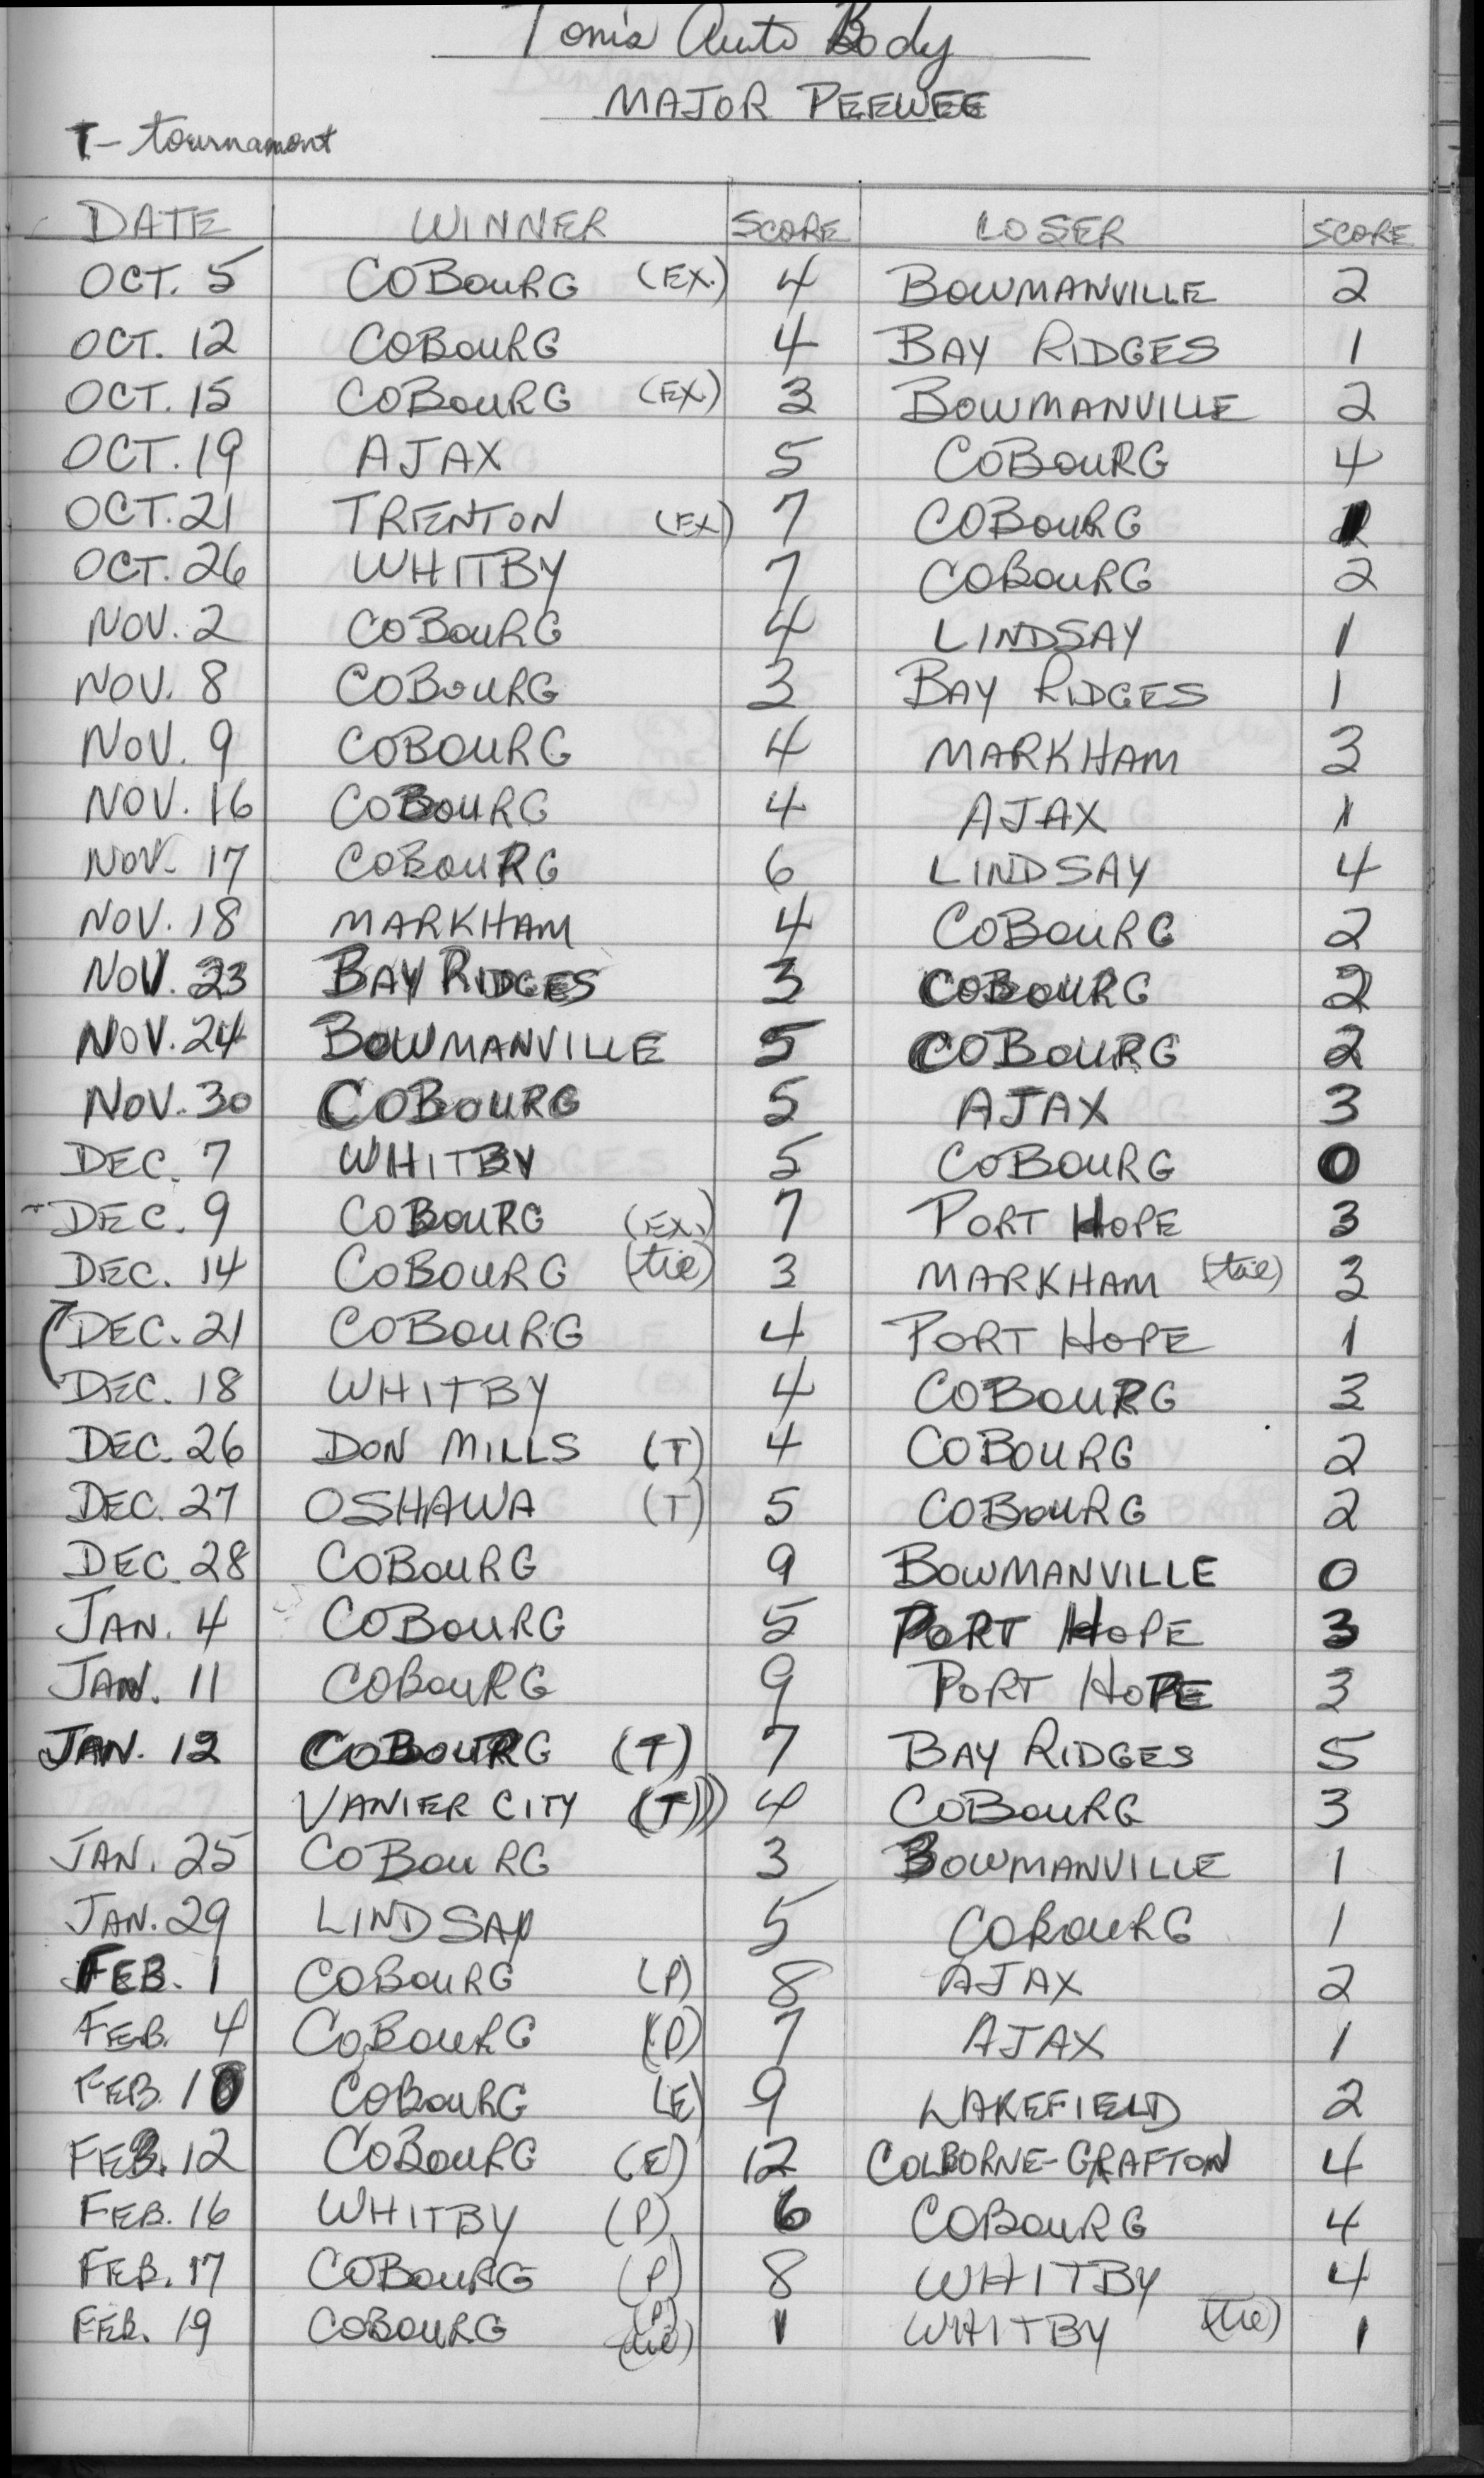 Tom's Auto Body
MAJOR PEEWEE
T - tournament
DATE WINNER SCORE LOSER SCORE
OCT. 5 COBOURG (EX.) 4 BOWMANVILLE 2
OCT. 12 COBOURG 4 BAY RIDGES 1
OCT. 15 COBOURG (EX) 3 BOWMANVILLE 2
OCT. 19 AJAX 5 COBOURG 4
OCT. 21 TRENTON (EX) 7 COBOURG
OCT. 26 WHITBY 7 COBOURG 2
NOV. 2 COBOURG 4 LINDSAY 1
NOV. 8 COBOURG 3 BAY RIDGES 1
NOV. 9 COBOURG 4 MARKHAM 3
NOV. 16 COBOURG 4 AJAX 1
NOV. 17 COBOURG 6 LINDSAY 4
NOV. 18 MARKHAM 4 COBOURG 2
NOV. 23 BAY RIDGES 3 COBOURG 2
NOV. 24 BOWMANVILLE 5 COBOURG 2
NOV. 30 COBOURG 5 AJAX 3
DEC. 7 WHITBY 5 COBOURG 0
DEC. 9 COBOURG (EX.) 7 PORT HOPE 3
DEC. 14 COBOURG (tie) 3 MARKHAM (tie) 3
DEC. 21 COBOURG 4 PORT HOPE 1
DEC. 18 WHITBY 4 COBOURG 3
DEC. 26 DON MILLS (T) 4 COBOURG 2
DEC. 27 OSHAWA (T) 5 COBOURG 2
DEC. 28 COBOURG 9 BOWMANVILLE 0
JAN. 4 COBOURG 5 PORT HOPE 3
JAN. 11 COBOURG 9 PORT HOPE 3
JAN. 12 COBOURG (T) 7 BAY RIDGES 5
VANIER CITY (T) 4 COBOURG 3
JAN. 25 COBOURG 3 BOWMANVILLE 1
JAN. 29 LINDSAY 5 COBOURG 1
FEB. 1 COBOURG (P) 8 AJAX 2
FEB. 4 COBOURG (P) 7 AJAX 1
FEB. 10 COBOURG (E) 9 LAKEFIELD 2
FEB. 12 COBOURG (E) 12 COLBORNE-GRAFTON 4
FEB. 16 WHITBY (P) 6 COBOURG 4
FEB. 17 COBOURG (P) 8 WHITBY 4
FEB. 19 COBOURG (P) (tie) 1 WHITBY (tie) 1